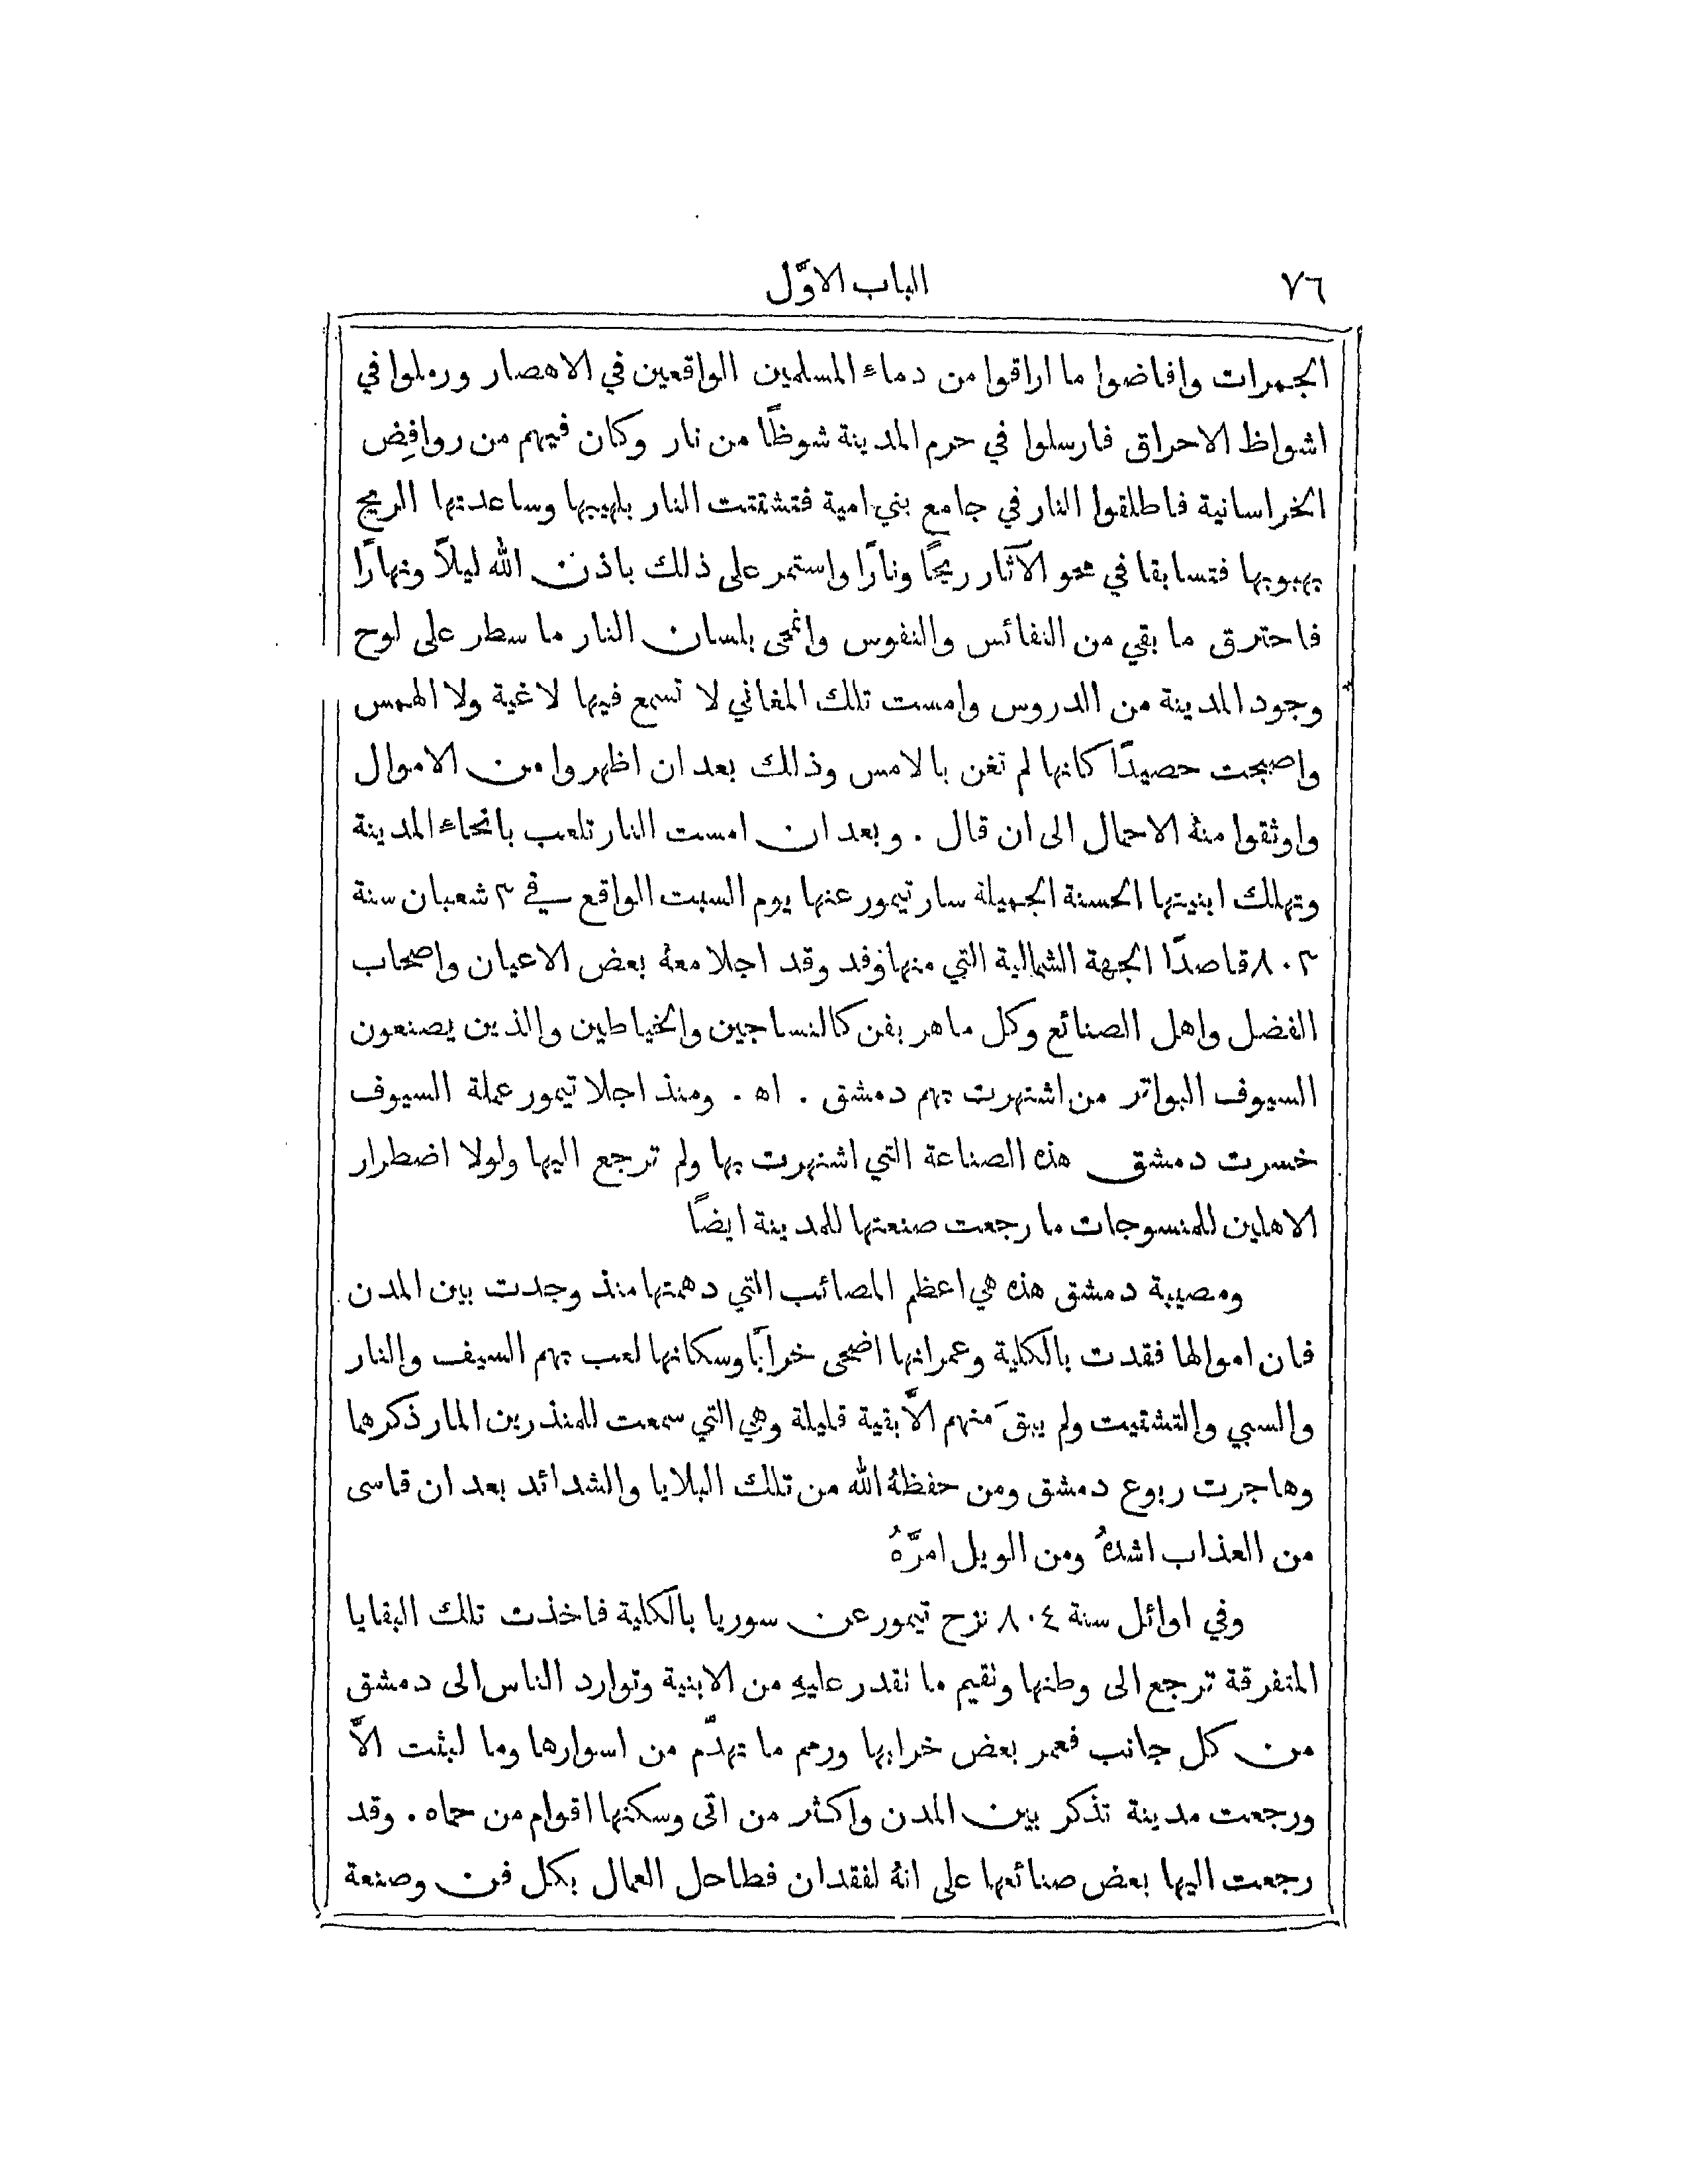 ٧٦
الباب الاوَّل
الجمرات وافاضوا ما اراقوا من دماء المسلمين الواقعين في الاهصار ورملوا في
اشواظ الاحراق فارسلوا في حرم المدينة شوظًا من نار وكان فيهم من روافِض
الخراسانية فاطلقوا النار في جامع بني امية فتشتتت النار بلهيبها وساعدتها الريح
بهبوبها فتسابقا في محو الآثار ريحًا ونارًا واستمر على ذلك باذن الله ليلاً ونهارًا
فاحترق ما بقي من النفائس والنفوس وانمحى بلسان النار ما سطر على لوح
وجود المدينة من الدروس وامست تلك المغاني لا تسمع فيها لاغية ولا الهمس
واصبحت حصيدًا كانها لم تغن بالامس وذلك بعد ان اظهروا من الاموال
واوثقوا منهُ الاحمال الى ان قال . وبعد ان امست النار تلعب بانحاء المدينة
وتهلك ابنيتها الحسنة الجميلة سار تيمور عنها يوم السبت الواقع في ٣ شعبان سنة
٨٠٣ قاصدًا الجهة الشمالية التي منها وفد وقد اجلا معهُ بعض الاعيان واصحاب
الفضل واهل الصنائع وكل ماهر بفن كالنساجين والخياطين والذين يصنعون
السيوف البواتر من اشتهرت بهم دمشق . اه . ومنذ اجلا تيمور عملة السيوف
خسرت دمشق هذه الصناعة التي اشتهرت بها ولم ترجع اليها ولولا اضطرار
الاهلين للمنسوجات ما رجعت صنعتها للمدينة ايضًا
ومصيبة دمشق هذه هي اعظم المصائب التي دهمتها منذ وجدت بين المدن
فان اموالها فقدت بالكلية وعمرانها اضحى خرابًا وسكانها لعب بهم السيف والنار
والسبي والتشتيت ولم يبقَ منهم الاَّ بقية قليلة وهي التي سمعت للمنذرين المار ذكرهما
وهاجرت ربوع دمشق ومن حفظهُ الله من تلك البلايا والشدائد بعد ان قاسى
من العذاب اشدهُ ومن الويل امرَّهُ
وفي اوائل سنة ٨٠٤ نزح تيمور عن سوريا بالكلية فاخذت تلك البقايا
المتفرقة ترجع الى وطنها وتقيم ما تقدر عليهِ من الابنية وتوارد الناس الى دمشق
من كل جانب فعمر بعض خرابها ورمم ما تهدّم من اسوارها وما لبثت الاَّ
ورجعت مدينة تذكر بين المدن واكثر من اتى وسكنها اقوام من حماه . وقد
رجعت اليها بعض صنائعها على انهُ لفقدان فطاحل العمال بكل فن وصنعة